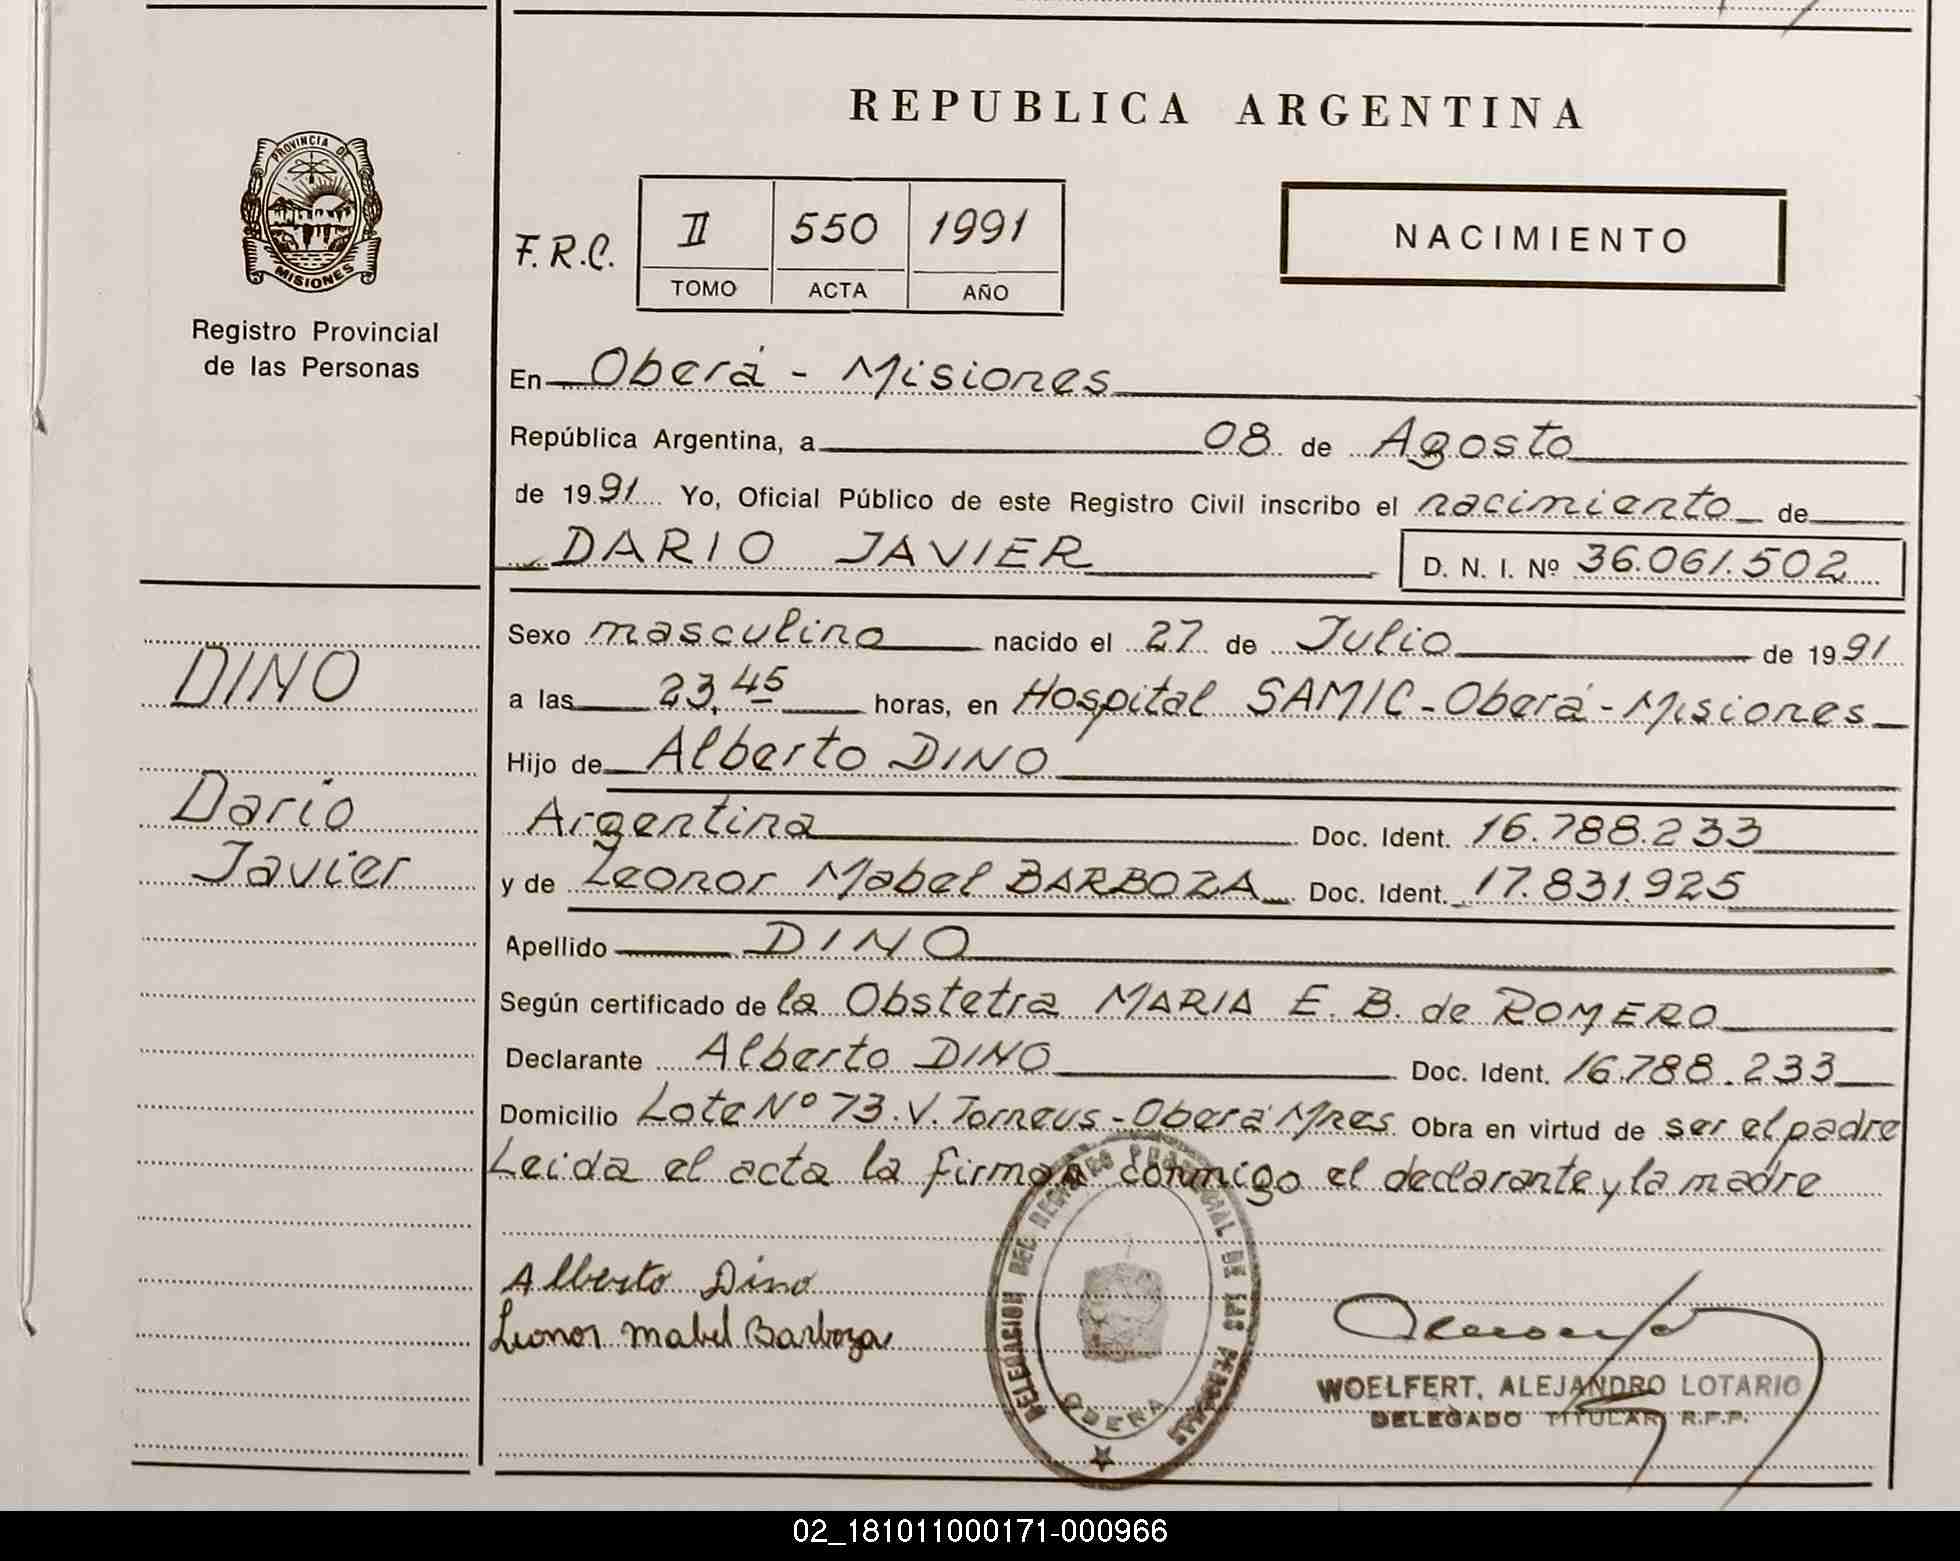 REPUBLICA ARGENTINA
PROVINCIA DE
MISIONES
Registro Provincial
de las Personas
F.R.C.
II 550 1991
TOMO ACTA AÑO
NACIMIENTO
En Oberá - Misiones
República Argentina, a 08 de Agosto
de 1991 Yo, Oficial Público de este Registro Civil inscribo el nacimiento de
DARIO JAVIER D. N. I. Nº 36.061.502
Sexo masculino nacido el 27 de Julio de 1991
a las 23,45 horas, en Hospital SAMIC - Oberá - Misiones
Hijo de Alberto DINO
Argentina Doc. Ident. 16.788.233
y de Leonor Mabel BARBOZA Doc. Ident. 17.831.925
Apellido DINO
Según certificado de la Obstetra MARIA E. B. de ROMERO
Declarante Alberto DINO Doc. Ident. 16.788.233
Domicilio Lote Nº 73. V. Torneus - Oberá Mnes Obra en virtud de ser el padre
Leida el acta la firman conmigo el declarante y la madre
DINO
Dario
Javier
Alberto Dino
Leonor Mabel Barboza
DELEGACION DEL REGISTRO PROVINCIAL DE LAS PERSONAS
OBERA
WOELFERT, ALEJANDRO LOTARIO
DELEGADO TITULAR R.P.P.
02_181011000171-000966